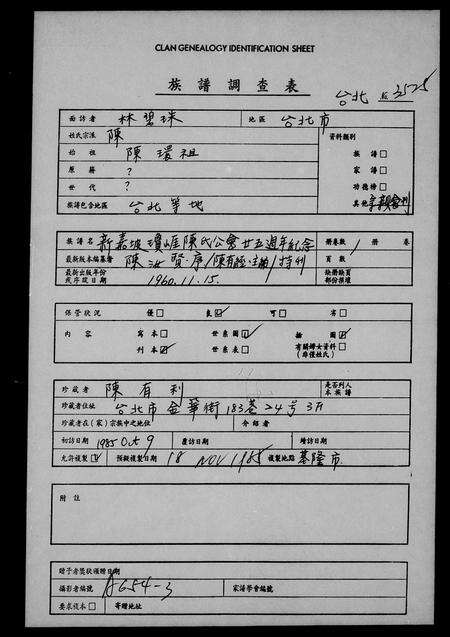 CLAN GENEALOGY IDENTIFICATION SHEET
族譜調查表
台北 3525
面訪者 林碧珠 地區 台北市
姓氏宗派 陳 資料類別
始祖 陳環祖 族譜□
原籍 ? 家譜□
世代 ? 功德榜□
族譜包含地區 台北等地 其他
族譜名 新嘉坡瓊崖陳氏公會廿五週年紀念特刊 冊卷數 1 冊 卷
最新版本編纂者 陳 賢序/陳有經主編 頁數
最新出版年份或序跋日期 1960.11.15. 缺冊缺頁部份損壞
保管狀況 優□ 良☑ 可□ 劣□
內容 寫本□ 世系圖☑ 插圖☑
刊本☑ 世系表□ 有關婦女資料□(非僅姓氏)
珍藏者 陳有利 是否列入本族譜
珍藏者住址 台北市金華街183巷24号3F
珍藏者在(家)宗族中之地位 介紹者
初訪日期 1985 Oct 9 覆訪日期 增訪日期
允許複製☑ 預擬複製日期 18 NOV 1985 複製地點 基隆市
附註
贈予者獎狀頒贈日期
攝影者編號 A654-3 家譜學會編號
要求複本□ 寄贈地址